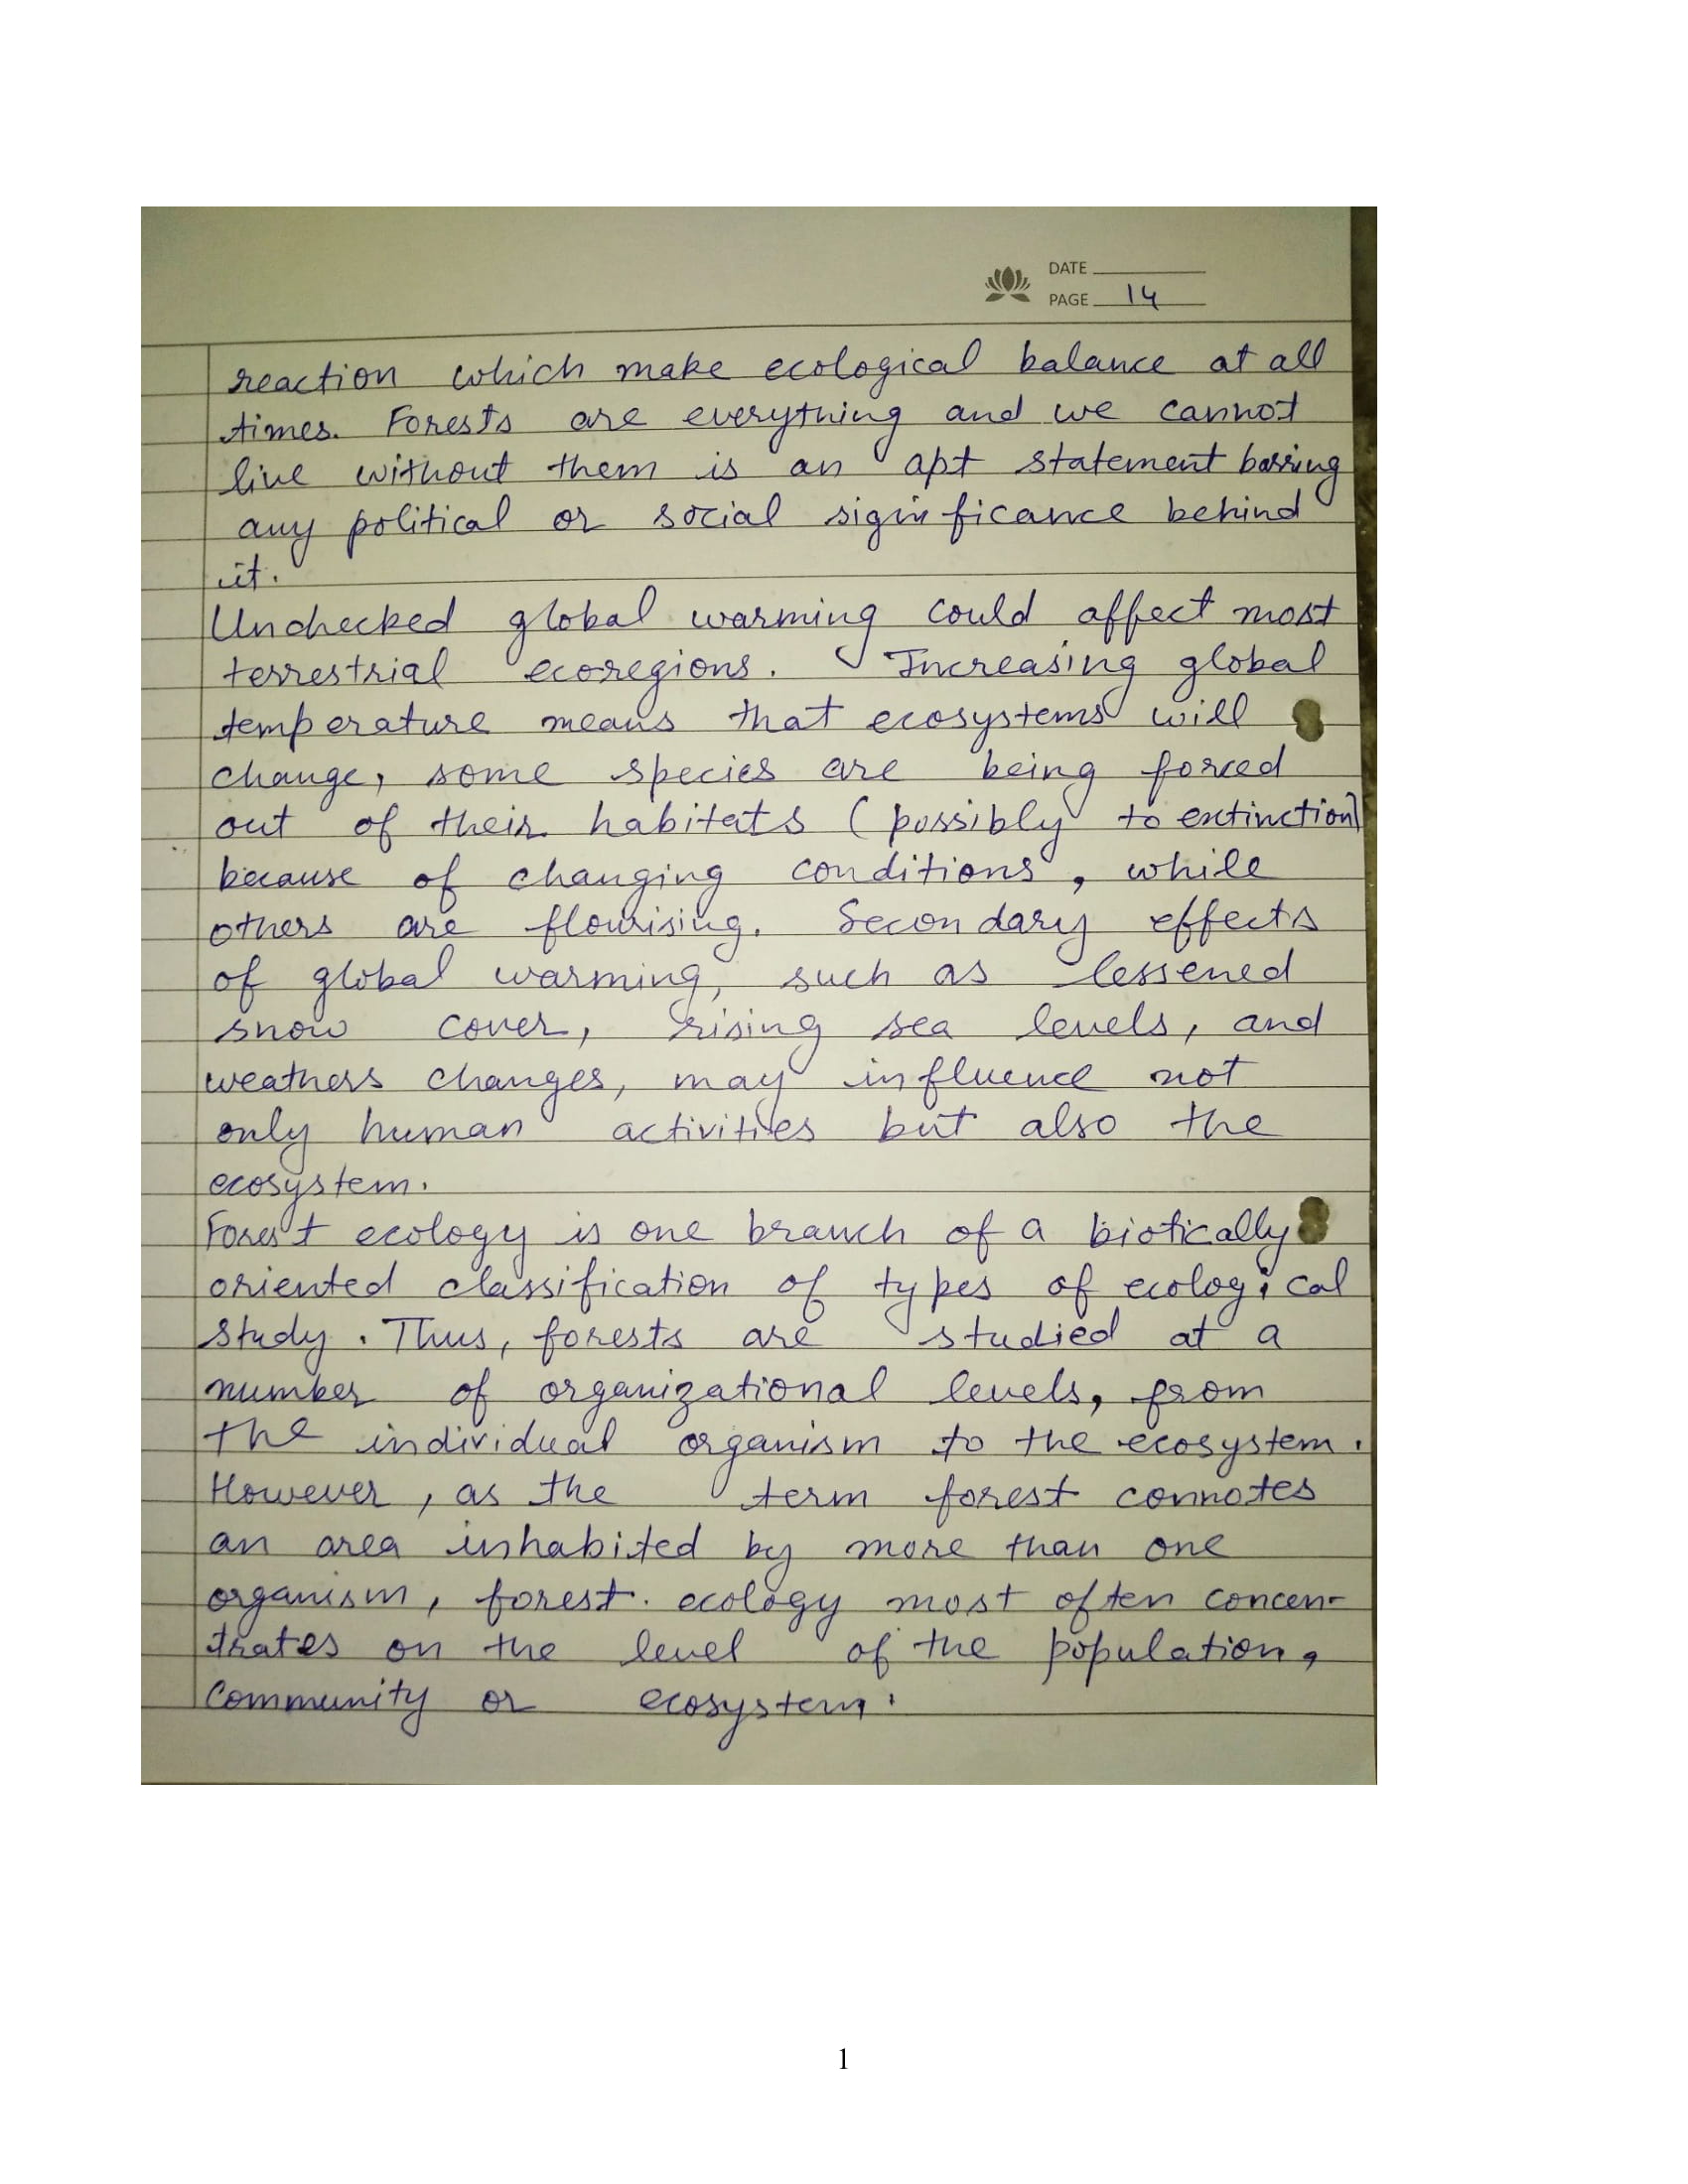 DATE
PAGE 14
reaction which make ecological balance at all
times. Forests are everything and we cannot
live without them is an apt statement barring
any political or social significance behind
it.
Unchecked global warming could affect most
terrestrial ecoregions. Increasing global
temperature means that ecosystems will
change, some species are being forced
out of their habitats (possibly to extinction)
because of changing conditions, while
others are flourising. Secondary effects
of global warming, such as lessened
snow cover, rising sea levels, and
weathers changes, may influence not
only human activities but also the
ecosystem.
Forest ecology is one branch of a biotically
oriented classification of types of ecological
study. Thus, forests are studied at a
number of organizational levels, from
the individual organism to the ecosystem.
However, as the term forest connotes
an area inhabited by more than one
organism, forest. ecology most often concen-
trates on the level of the population,
community or ecosystem.
1